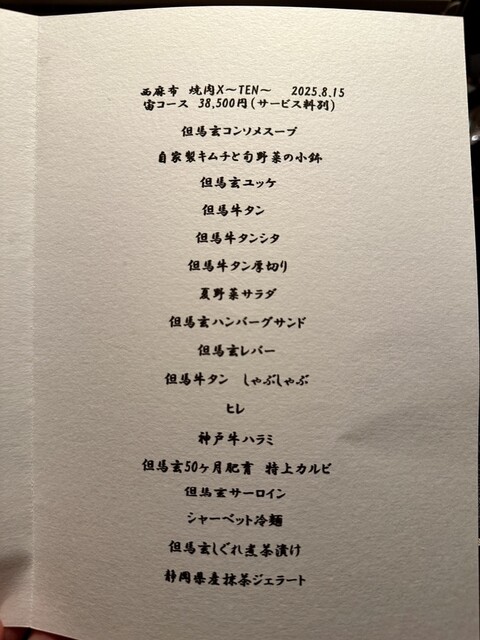 西麻布 焼肉X〜TEN〜 2025.8.15
宙コース 38,500円(サービス料別)
但馬玄コンソメスープ
自家製キムチと旬野菜の小鉢
但馬玄ユッケ
但馬牛タン
但馬牛タンシタ
但馬牛タン厚切り
夏野菜サラダ
但馬玄ハンバーグサンド
但馬玄レバー
但馬牛タン しゃぶしゃぶ
ヒレ
神戸牛ハラミ
但馬玄50ヶ月肥育 特上カルビ
但馬玄サーロイン
シャーベット冷麺
但馬玄しぐれ煮茶漬け
静岡県産抹茶ジェラート